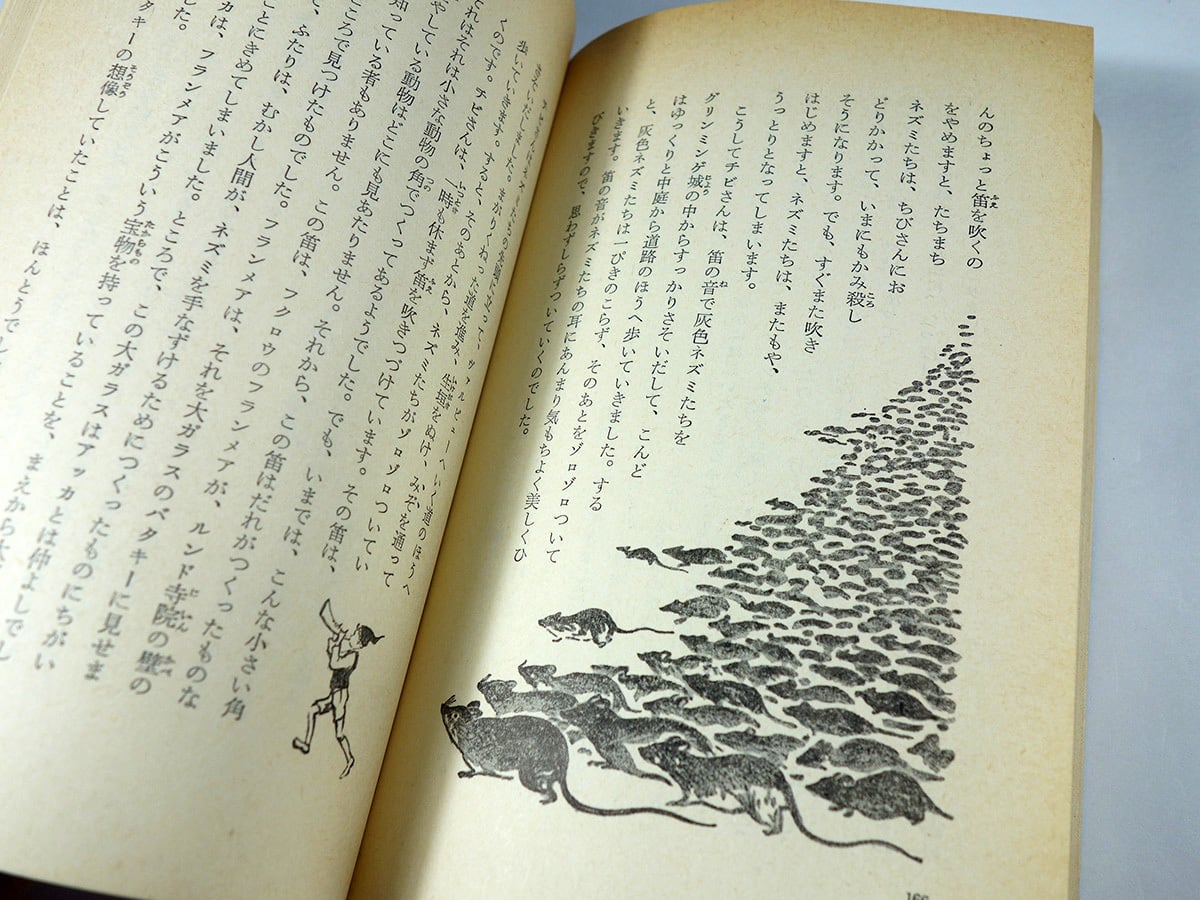 んのちょっと笛を吹くの
をやめますと、たちまち
ネズミたちは、ちびさんにお
どりかかって、いまにもかみ殺し
そうになります。でも、すぐまた吹き
はじめますと、ネズミたちは、またもや、
うっとりとなってしまいます。
こうしてチビさんは、笛の音で灰色ネズミたちを
グリンミンゲ城の中からすっかりさそいだして、こんど
はゆっくりと中庭から道路のほうへ歩いていきました。する
と、灰色ネズミたちは一ぴきのこらず、そのあとをゾロゾロついて
いきます。笛の音がネズミたちの耳にあんまり気もちよく美しくひ
びきますので、思わずしらずついていくのでした。
166
歩いていきます。すると、そのあとから、ネズミたちがゾロゾロついてい
くのです。チビさんは、一時も休まず笛を吹きつづけています。その笛は、
それはそれは小さな動物の角でつくってあるようでした。でも、いまでは、こんな小さい角
やしている動物はどこにも見あたりません。それから、この笛はだれがつくったものな
知っている者もありません。この笛は、フクロウのフランメアが、ルンド寺院の壁の
ころで見つけたものでした。フランメアは、それを大ガラスのバタキーに見せま
で、ふたりは、むかし人間が、ネズミを手なずけるためにつくったものにちがい
ことにきめてしまいました。ところで、この大ガラスはアッカとは仲よしでし
カは、フランメアがこういう宝物を持っていることを、まえから
した。
タキーの想像していたことは、ほんとうでし